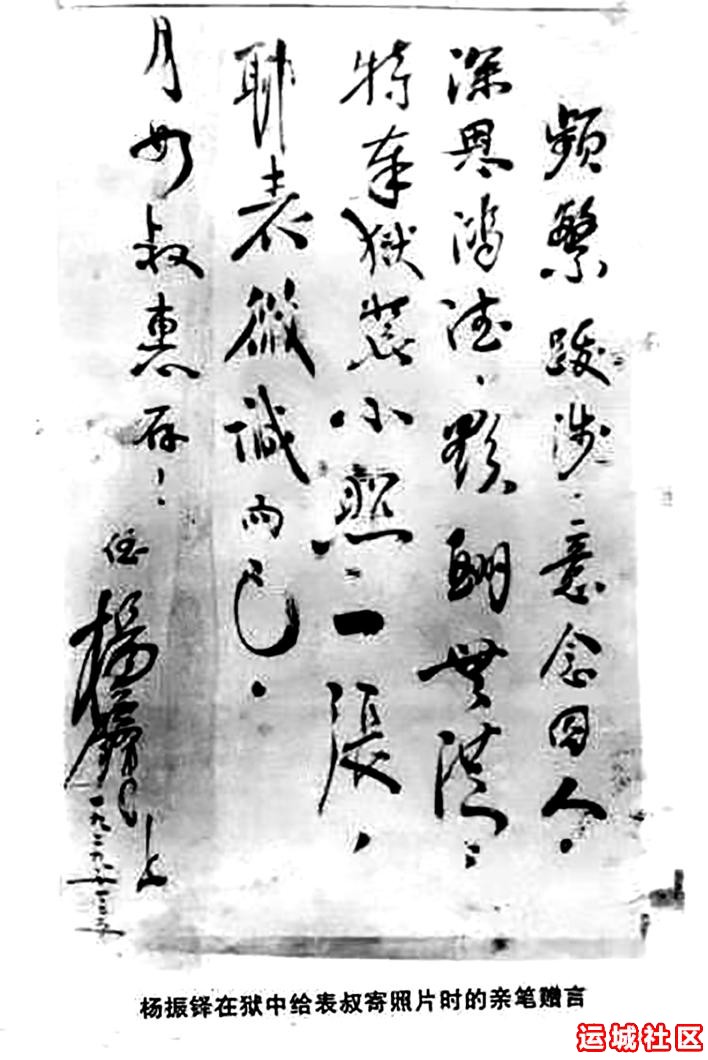 频繁跋涉：意念囚人。
深恩鸿德、难酬无涯：
特奉狱装小照一张，
聊表微诚而已．
月如叔惠存！
侄
杨
上
杨振铎在狱中给表叔寄照片时的亲笔赠言
运城社区